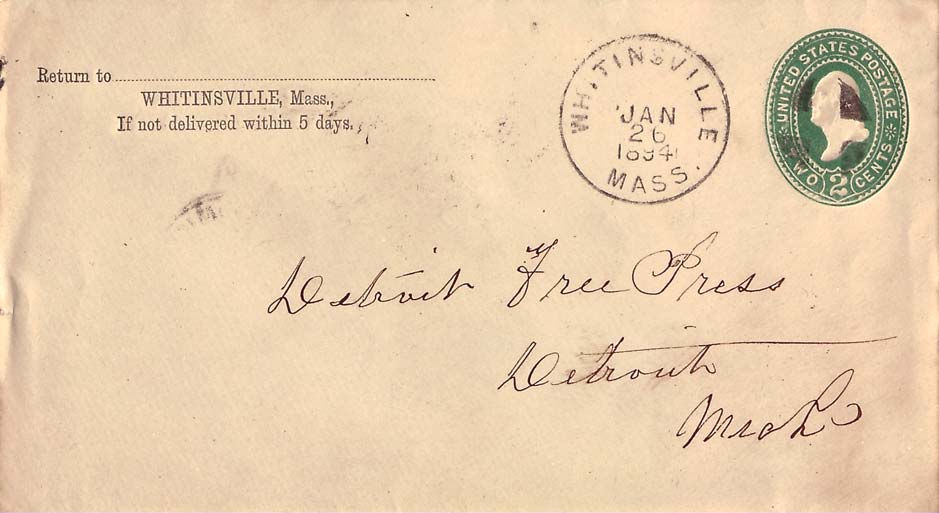 Return to
WHITINSVILLE, Mass.,
If not delivered within 5 days.
WHITINSVILLE
JAN
26
1894
MASS.
UNITED STATES POSTAGE
TWO 2 CENTS
Detroit Free Press
Detroit
Mich